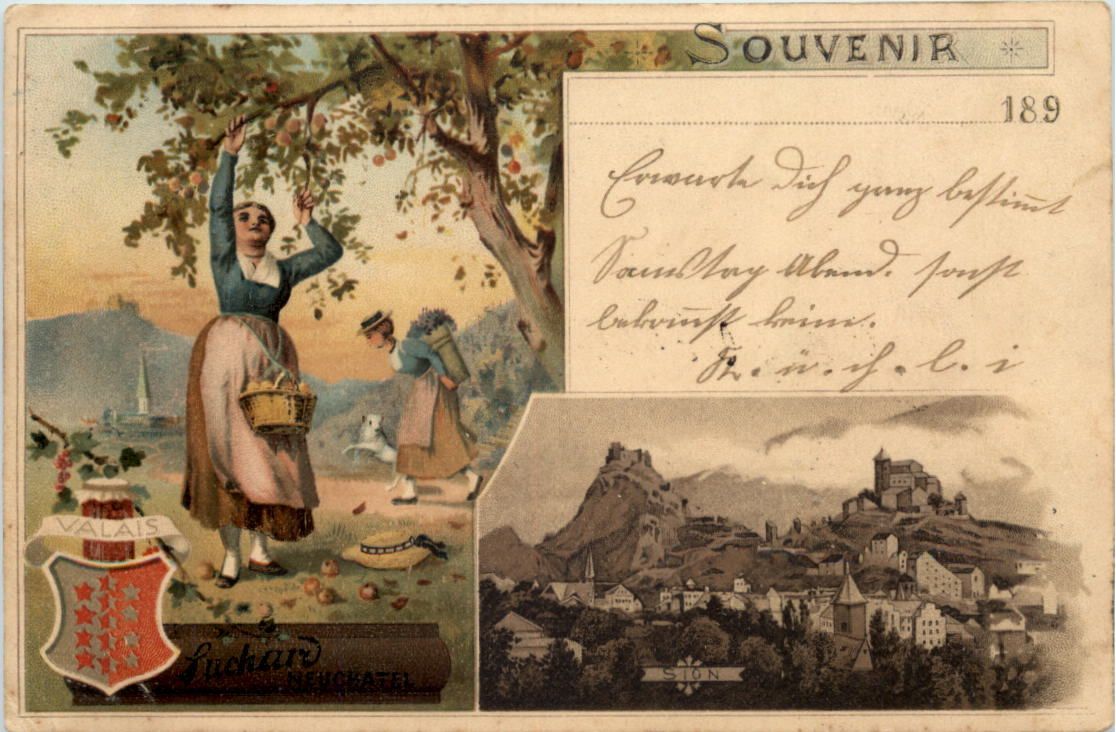 SOUVENIR
189
Erwarte Dich ganz bestimmt
Samstag Abend. sonst
bekommst keine.
K. ü. ch. l. i
VALAIS
Suchard
NEUCHATEL
SION